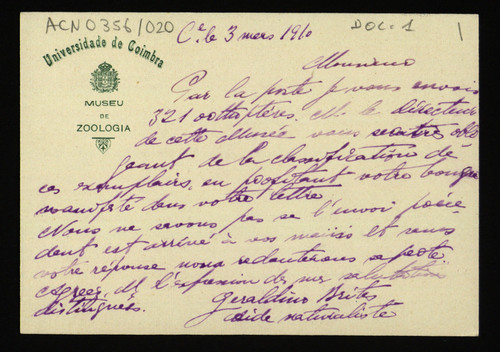 ACN0356/020
DOC. 1
Universidade de Coimbra
MUSEU
DE
ZOOLOGIA
Ce. le 3 mers 1910
Monsieur
Par la poste je vous envois
321 orthoptères. M. le directeur
de cette Musée vous serait obli
geant de la classification de
ces exemplairs, en profitant votre
manifesté dans votre lettre
Nous ne savons pas se l'envoi précé
dent est arrivé à vos mains et sans
votre réponse nous redouterons la poste
Agreez M. l'expression de mes salutations
distinguées.
Geraldino Brites
aide naturaliste